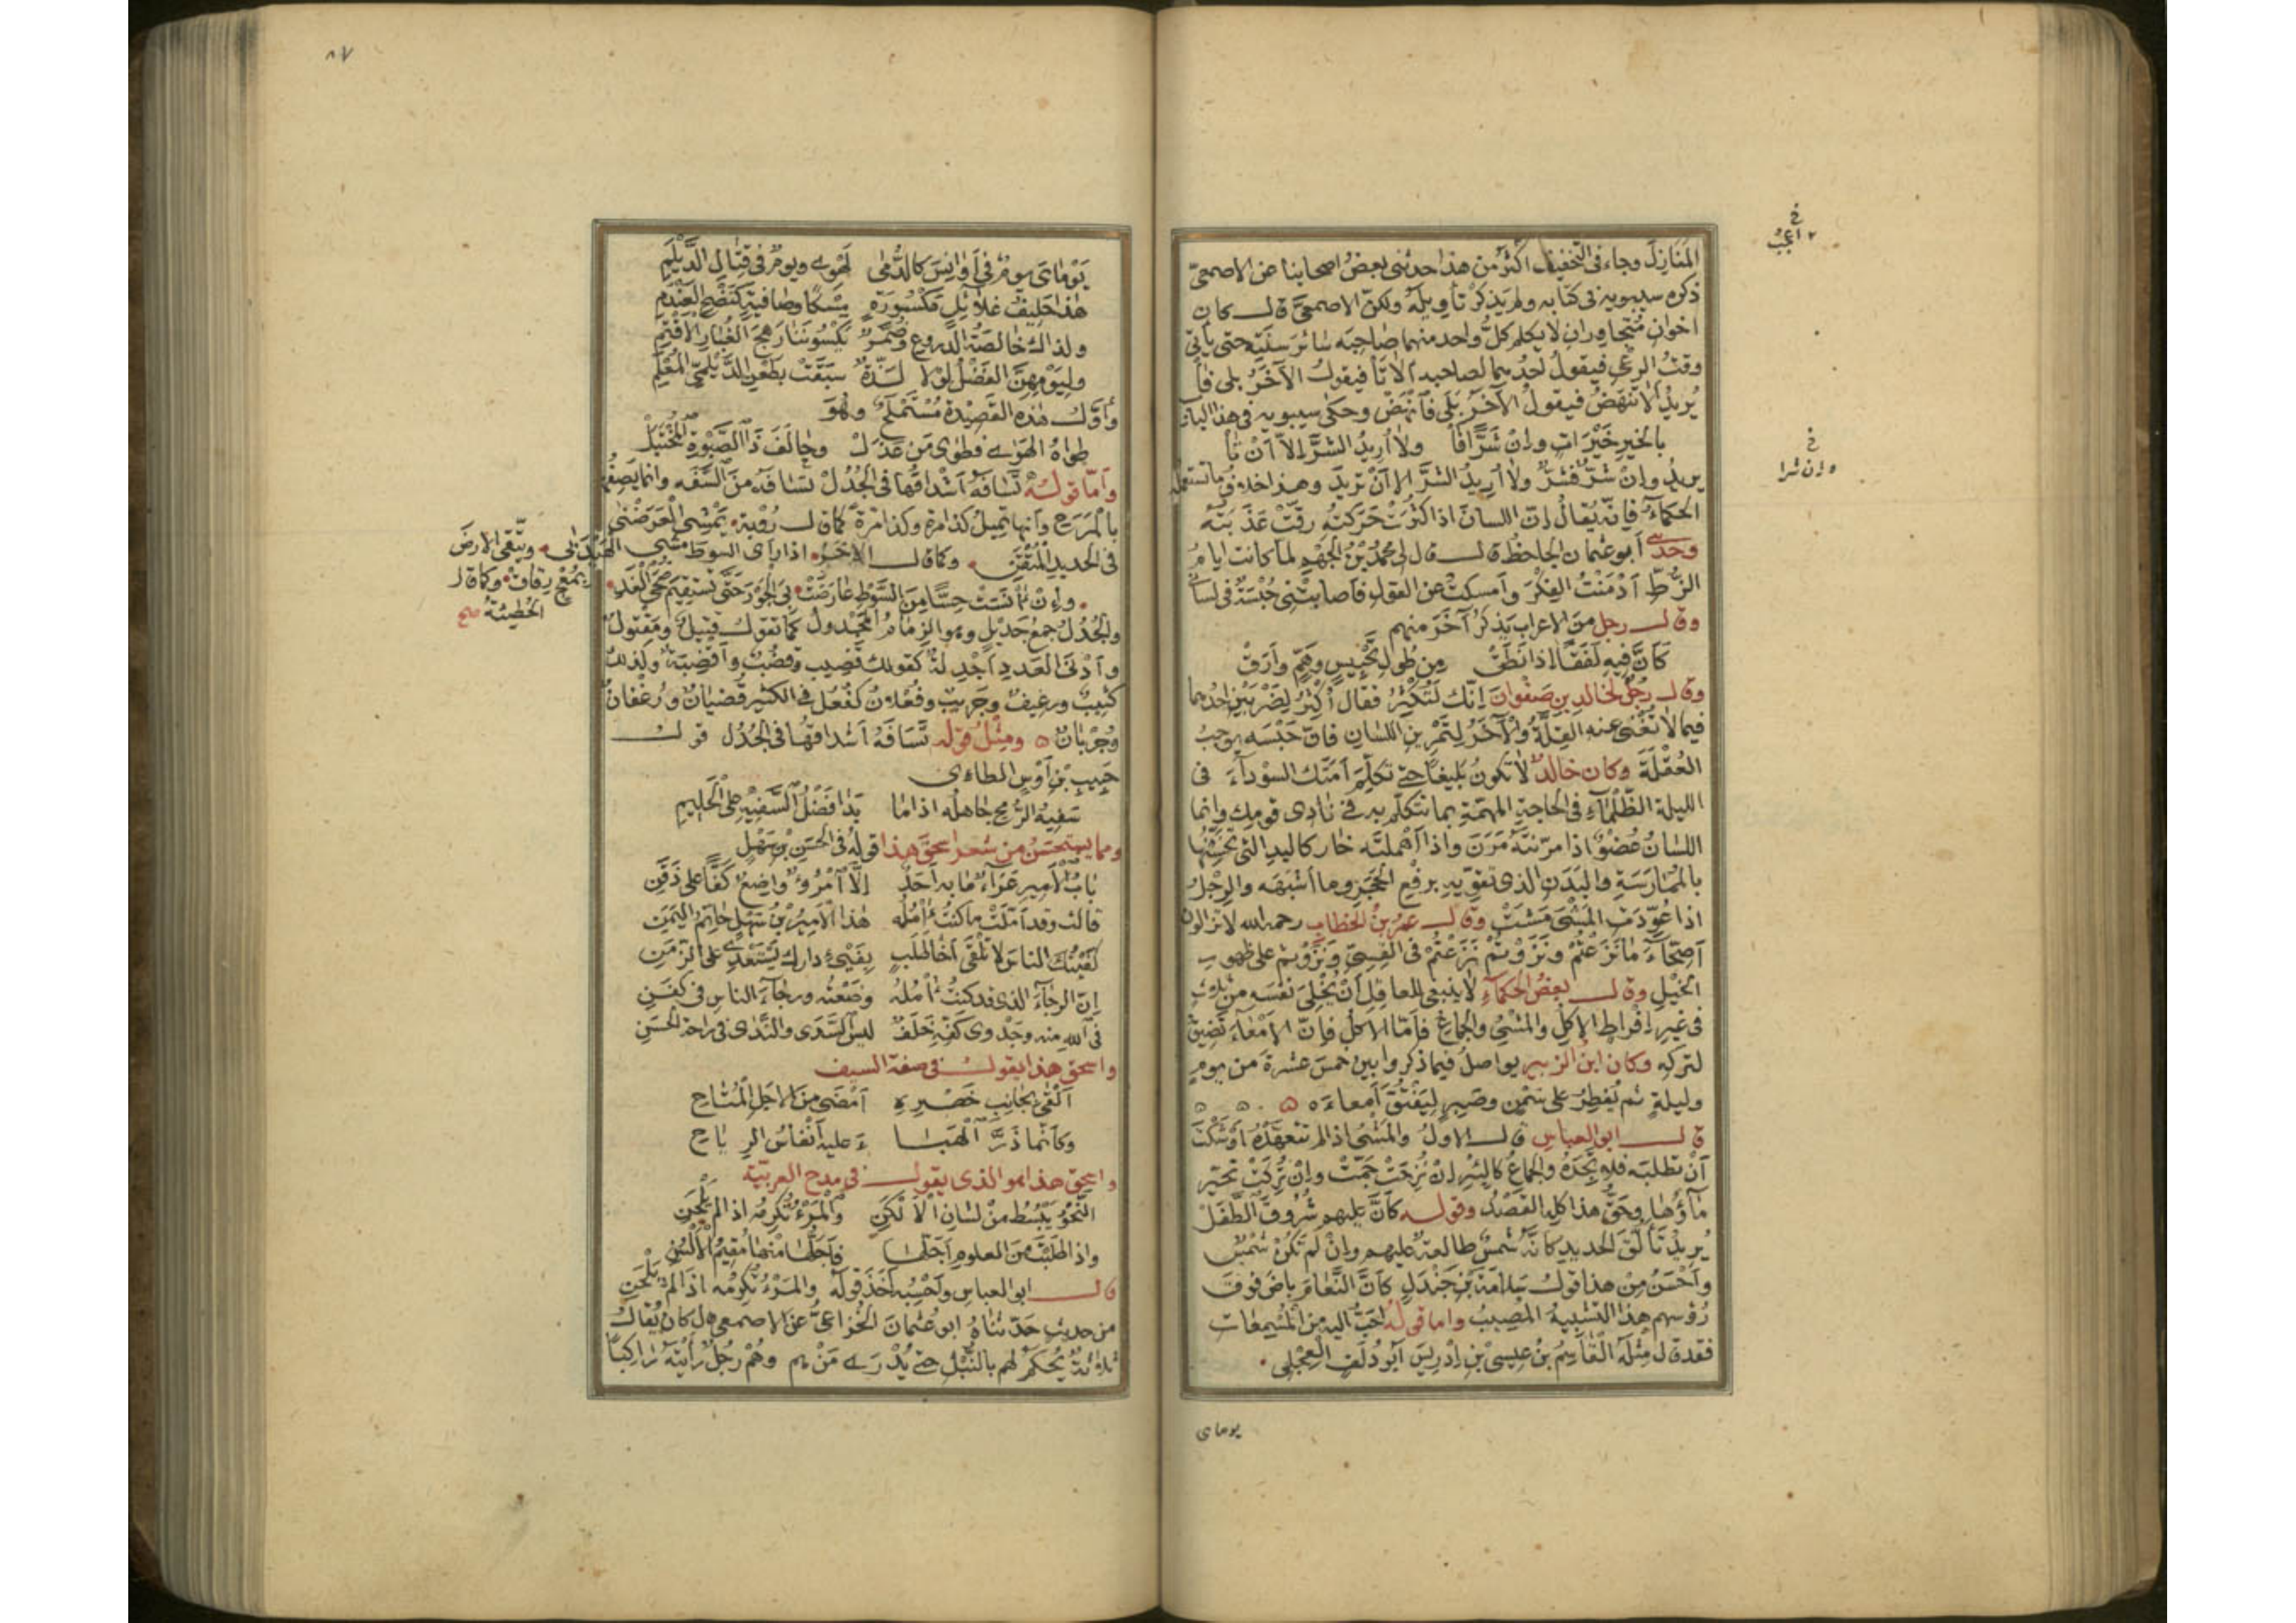 المَنَازِلَ وجاء فى التخفيف أكثرُ من هذا حدثنى بعضُ اصحابنا عن الاصمعىّ
ذكره سيبويه فى كتابه ولم يَذكرْ تأويلَهُ ولكنّ الاصمعىَّ قال كان
اخوانِ مُتجاوِرانِ لا يكلم كلُّ واحد منهما صاحِبَه سَائرَ سنَتِه حتى يأتىَ
وقتُ الرعىِ فيقولُ احدُهما لصاحبه ألا تَا فيقولُ الآخَرُ بلى فَا
يُريدُ ألا تنهَضُ فيقولُ الآخَرُ بَلَى فَانْهَضْ وحكى سيبويه فى هذا الباب
بالخيرِ خَيْرَاتٍ وإنْ شَرًّا فَا ولا أُرِيدُ الشَّرَّ إلّا أنْ تَا
يريدُ وإنْ شَرٌّ فشَرٌّ ولا أُريدُ الشرَّ إلا أنْ تريدَ وهذا خلافُ ما تستعمله
الحكمآءُ فإنّه يُقالُ إنّ اللسانَ اذا كثُرَتْ حَرَكتُهُ رقَّتْ عَذَبَتُه
وحدّثنى أبو عثمان الجاحظ قال قال لى محمدُ بْنُ الجَهْمِ لما كانت ايامُ
الزُّطِّ أدْمَنْتُ الفِكْرَ وأمسكتُ عن القولِ فأصابتْنى حُبْسَةٌ فى لسانى
وقال رجل منَ الاعراب يَذكرُ آخَرَ منهم
كَأنَّ فيهِ لَفَفًا إذا نَطَقْ مِن طُولِ تَحْبِيسٍ وهَمٍّ وأرَقْ
وقال رجُلٌ لخالدِ بنِ صَفْوانَ إنّك لَتُكْثِرُ فقال أُكثِرُ لِضَرْبَيْنِ احدُهما
فيما لا تُغْنى عنه القِلّةُ والآخَرُ لتَمْرِينِ اللسانِ فإنّ حَبْسَه يوجبُ
العُقْلَةَ وكان خالدٌ لا تكونُ بَلِيغًا حتى تكلِّمَ أمَتَك السّودآءَ فى
الليلة الظَّلْمَآءِ فى الحاجةِ المهمّةِ بما تتكلّم به فى نادِى قومِك وإنما
اللسانُ عُضْوٌ اذا مرّنتَهُ مَرَنَ واذا أهملتَه خارَ كاليدِ التى تُخَشِّنُها
بالمُمَارَسَةِ والبَدَنِ الذى تقوِّيهِ برفعِ الحَجَرِ وما أشبَهَه والرِّجْلِ
اذا عُوِّدَتِ المَشْىَ مَشَتْ وقال عمرُ بنُ الخطابِ رحمه الله لا تزالونَ
أصِحَّآءَ مَا نَزَعْتُمْ ونَزَوْتُمْ نَزَعْتُمْ فى القِسِىِّ ونَزَوْتُمْ على ظهورِ
الخَيْلِ وقال بعضُ الحكمآءِ لا ينبغى للعاقِلِ أنْ يُخْلِىَ نفسَه من ثلاثٍ
فى غيرِ إفراطٍ الاكلِ والمَشْىِ والجِماعِ فأمّا الاكلُ فإنّ الأمعآءَ تَضِيقُ
لتركِه وكان ابن الزبير يواصلُ فيما ذكروا بين خمسَ عشْرةَ من يومٍ
وليلةٍ ثم يُفطِرُ على سَمْنٍ وصَبِرٍ ليَفْتُقَ أمعاءَه
قال ابو العباسِ قال الاولُ والمَشْىُ إذا لم تتعَهّدْهُ أوشَكْتَ
أنْ تطلبَه فلا تَجِدَهُ والجِماعُ كالبئرِ إنْ نُزِحَتْ جَمَّتْ وإنْ تُرِكَتْ تحيّر
مآؤُها وحَقُّ هذا كلِه القَصْدُ وقوله كأنّ عليهم شُرُوقَ الطَّفَلْ
يُرِيدُ تَأَلُّقَ الحديدِ كأنّه شَمسٌ طالعةٌ عليهم وإنْ لم تكُنْ شَمسٌ
وأحْسَنُ مِنْ هذا قولُ سَلامَةَ بْنِ جَنْدَلٍ كأنّ النَّعَامَ باضَ فوقَ
رُؤسِهم هذا التشبيهُ المصيبُ واما قولُه احَبُّ اليهِ من المُسْمِعَاتِ
فقد قال مِثلَه القاسِمُ بنُ عيسى بْنِ إدريسَ أبو دُلَفٍ العِجْلِى
يوماى
خ
أعجب
خ
وإن شرا
٨٧
يَوْمَاىَ يومٌ فى أوانِسَ كالدُّمَى لَهْوِى ويومٌ فى قِتَالِ الدَّيْلَمِ
هذا حَلِيفُ غَلائِلٍ مَكْسُورَةٍ مِسْكًا وصَافيةٍ كنَضْحِ العَنْدَمِ
ولذاكَ خالِصَةُ الدروعِ وضُمَّرٌ يكسُونَنَا رَهَجَ الغُبَارِ الأقْتَمِ
ولِيَوْمِهِنَّ الفَضْلُ لولا لَذّةٌ سبَقَتْ بطَعْنِ الدَّيْلَمِىِّ المُعْلِمِ
وأوّلُ هذه القَصِيْدة مُسْتَمْلَحٌ وهُوَ
طواهُ الهَوَى فطَوَى مَن عَذَلْ وحالَفَ ذَا الصَّبْوةِ المُخْتَبَلْ
وأمّا قولُه تَسَافَهُ أشْدَاقُها فى الجُدُلْ تسَافَهُ مِنَ السَّفَهِ وانما يَصِفُها
بالمَرَحِ وأنها تميلُ كذا مرّةً وكذا مرّةً كما قال رُؤبة يَمْشِى العَرَضْنَى
فى الحديدِ المُتْقَنِ وكما قال الآخر اذا رأى السوطَ مشى الهَيْدَبى ويتّقى الارضَ
بمُعْجٍ رِقاقٍ وكما قال
الحُطَيئةُ صح
وإنْ آنَسَتْ حِسًّا مِنَ السَّوْطِ عارَضَتْ بِىَ الجَوْرَ حَتَّى تستقيمَ ضُحَى الغَدِ
والجُدُلُ جمعُ جَدِيلٍ وهو الزِمامُ المَجْدولُ كما تقولُ قتيلٌ ومَقْتولٌ
وأدْنَى العَددِ أجْدِلةٌ كقولك قَضِيبٌ وقُضُبٌ وأقْضِبَةٌ وكذلك
كَثِيبٌ ورغيفٌ وجَرِيبٌ وفُعْلانٌ كفُعُلٍ فى الكثير قُضْبَانٌ ورُغْفَانٌ
وجُرْبانٌ ومِثْلُ قوله تَسَافَهُ أشداقُها فى الجُدُلْ قول
حَبِيبِ بْنِ أوْسٍ الطاءى
سَفِيهُ الرُّمحِ جاهلُه اذا ما بَدَا فَضْلُ السَّفِيْهِ على الحَلِيمِ
ومما يستحسَنُ من شعر إسحق هذا قولُه فى الحَسَنِ بْنِ سَهْلٍ
بَابُ الأميرِ عَرَاءٌ مَا بِه أحَدٌ إلّا امْرُؤٌ واضِعٌ كَفًّا على ذَقَنِ
قالت وقد أمّلَتْ ما كنتُ أأمُلُه هذا الأمِيرُ بْنُ سَهْلٍ حاتِمُ اليَمَنِ
كَفَيْتُكَ الناسَ لا تَلْقَى أخَا طَلَبٍ بِفَىْءِ دارِك يَسْتَعْدِى على الزمَنِ
إنّ الرجآءَ الذى قد كنتُ أأمُلُهُ وضَعْتُه ورجآءَ الناسِ فى كَفَنِ
فى اللهِ منه وجَدْوَى كَفِّه خَلَفٌ ليس السَّدَى والنَّدَى فى راحةِ الحَسَنِ
واسحق هذا يقول فى صفة السيف
ألقَى بجانِبِ خَصْرِهِ أمْضَى مِنَ الاجلِ المُتَاحِ
وكأنّما ذَرُّ الهَبَا ءِ عليه أنْفاسُ الرِيَاحِ
واسحق هذا هو الذى يقول فى مدح العربيّة
النَّحْوُ يَبْسُطُ مِنْ لسَانِ الألْكَنِ والمَرْءُ تُكرِمُه اذا لم يَلْحَنِ
واذا طَلَبْتَ مِنَ العلومِ أجَلَّها فأجَلُّها مِنْها مُقِيمُ الألْسُنِ
قال ابو العباس وأحْسِبُه أخَذَ قولَه والمَرْءُ تُكرِمُه اذا لم يَلْحَنِ
من حديثٍ حدّثناهُ ابو عثمانَ الخُزاعىُّ عن الاصمعى قال كان يُقالُ
ثلاثةٌ يُحْكَمُ لهم بالنُّبْلِ حتى يُدْرَى مَنْ هم وهُمْ رجُلٌ رَأيتَه رَاكِبًا